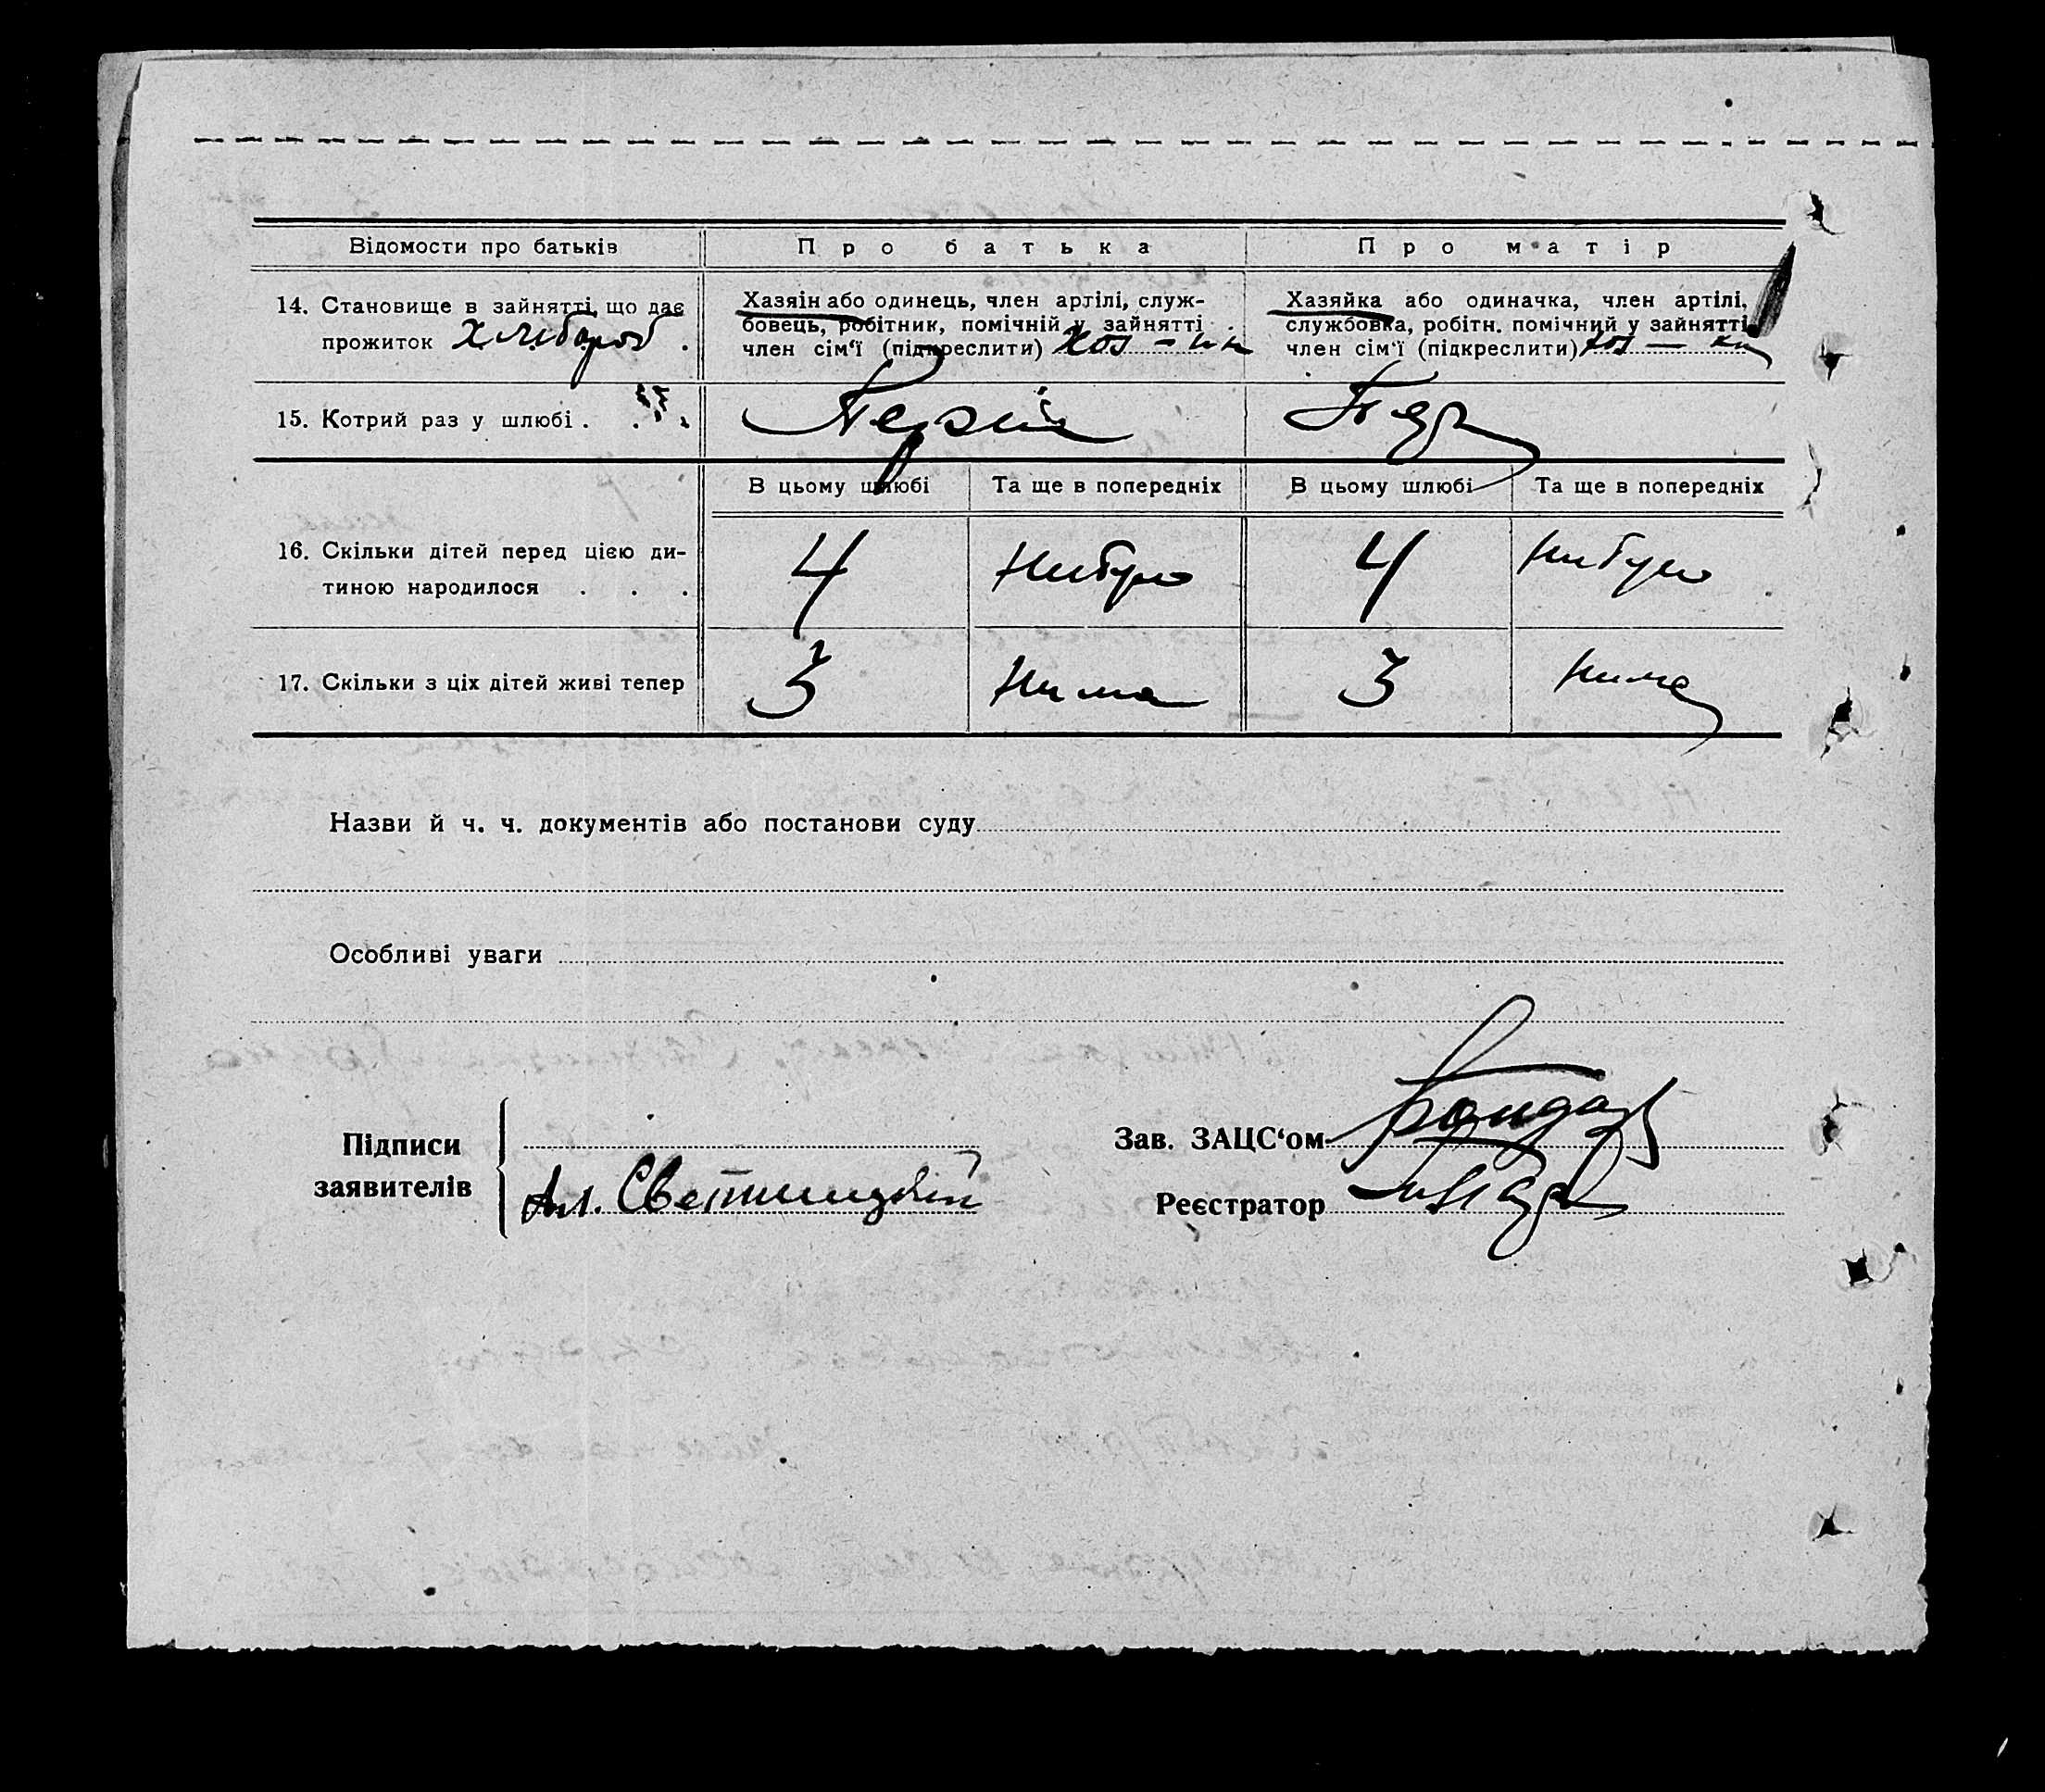 Відомости про батьків
Про батька
Про матір
14. Становище в зайнятті, що дає
прожиток Хлибороб .
Хазяін або одинець, член артілі, служ-
бовець, робітник, помічній у зайнятті
член сім'ї (підкреслити) Хоз – ин
Хазяйка або одиначка, член артілі,
службовка, робітн. помічний у зайнятті
член сім'ї (підкреслити) хоз – ка
15. Котрий раз у шлюбі . .
Перший
Пер
В цьому шлюбі
Та ще в попередніх
В цьому шлюбі
Та ще в попередніх
16. Скільки дітей перед цією ди-
тиною народилося . . .
4
Нибуло
4
Нибуло
17. Скільки з ціх дітей живі тепер
3
Нима
3
Нима
Назви й ч. ч. документів або постанови суду
Особливі уваги
Підписи
заявителів
Ал. Светницкий
Зав. ЗАЦС'ом Бондар
Реєстратор